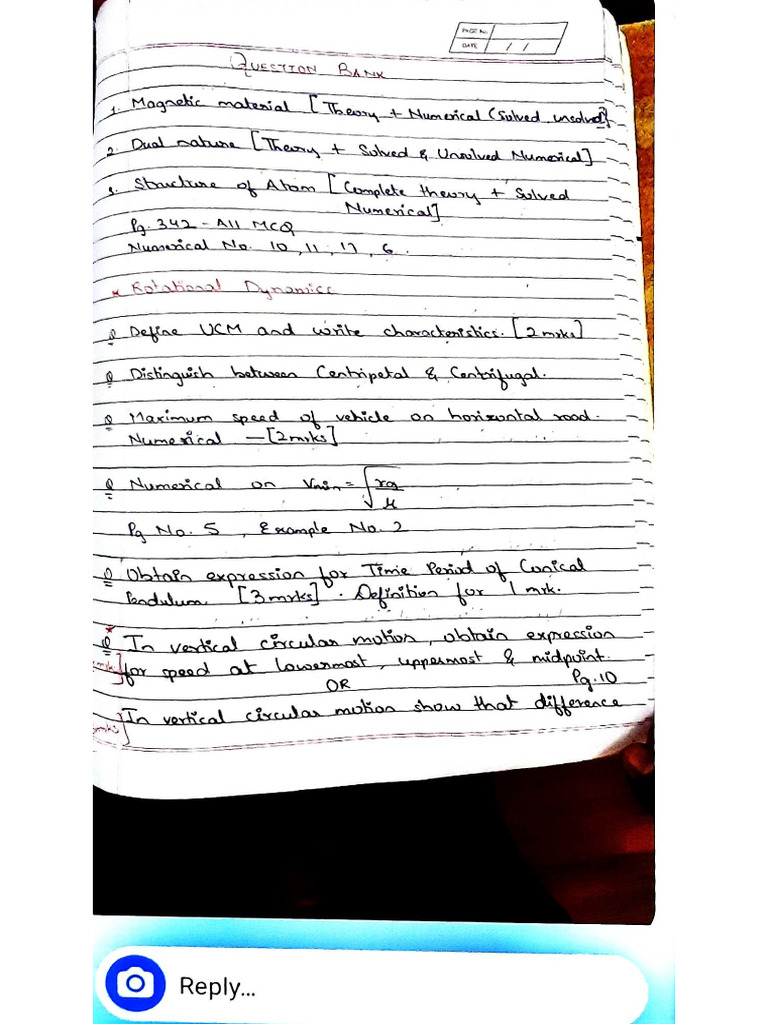 PAGE No.
DATE / /
QUESTION BANK
1. Magnetic material [Theory + Numerical (Solved, unsolved)]
2. Dual nature [Theory + Solved & Unsolved Numerical]
3. Structure of Atom [Complete theory + Solved
Numerical]
Pg. 342 - All MCQ
Numerical No. 10, 11, 17, 6.
* Rotational Dynamics
Q Define UCM and write characteristics. [2 mrks]
Q Distinguish between Centripetal & Centrifugal.
Q Maximum speed of vehicle on horizontal road.
Numerical — [2mrks]
Q Numerical on Vmin = √(rg/μ)
Pg No. 5, Example No. 2
Q Obtain expression for Time Period of Conical
Pendulum. [3mrks]. Definition for 1 mrk.
* Q In vertical circular motion, obtain expression
for speed at lowermost, uppermost & midpoint.
OR Pg. 10
In vertical circular motion show that difference
Reply...